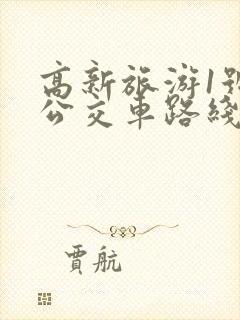 高新旅游1号
公交車路綫
賈航